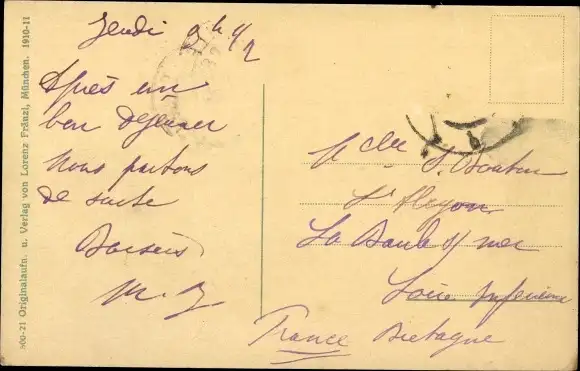 Jeudi 9h 1/2
Après un
bon déjeuner
Nous partons
de suite
Baisers
M. J.
Mlle S. Boutin
La Baule s/ mer
Loire Inférieure
France Bretagne
800-21 Originalaufn. u. Verlag von Lorenz Fränzl, München. 1910-11